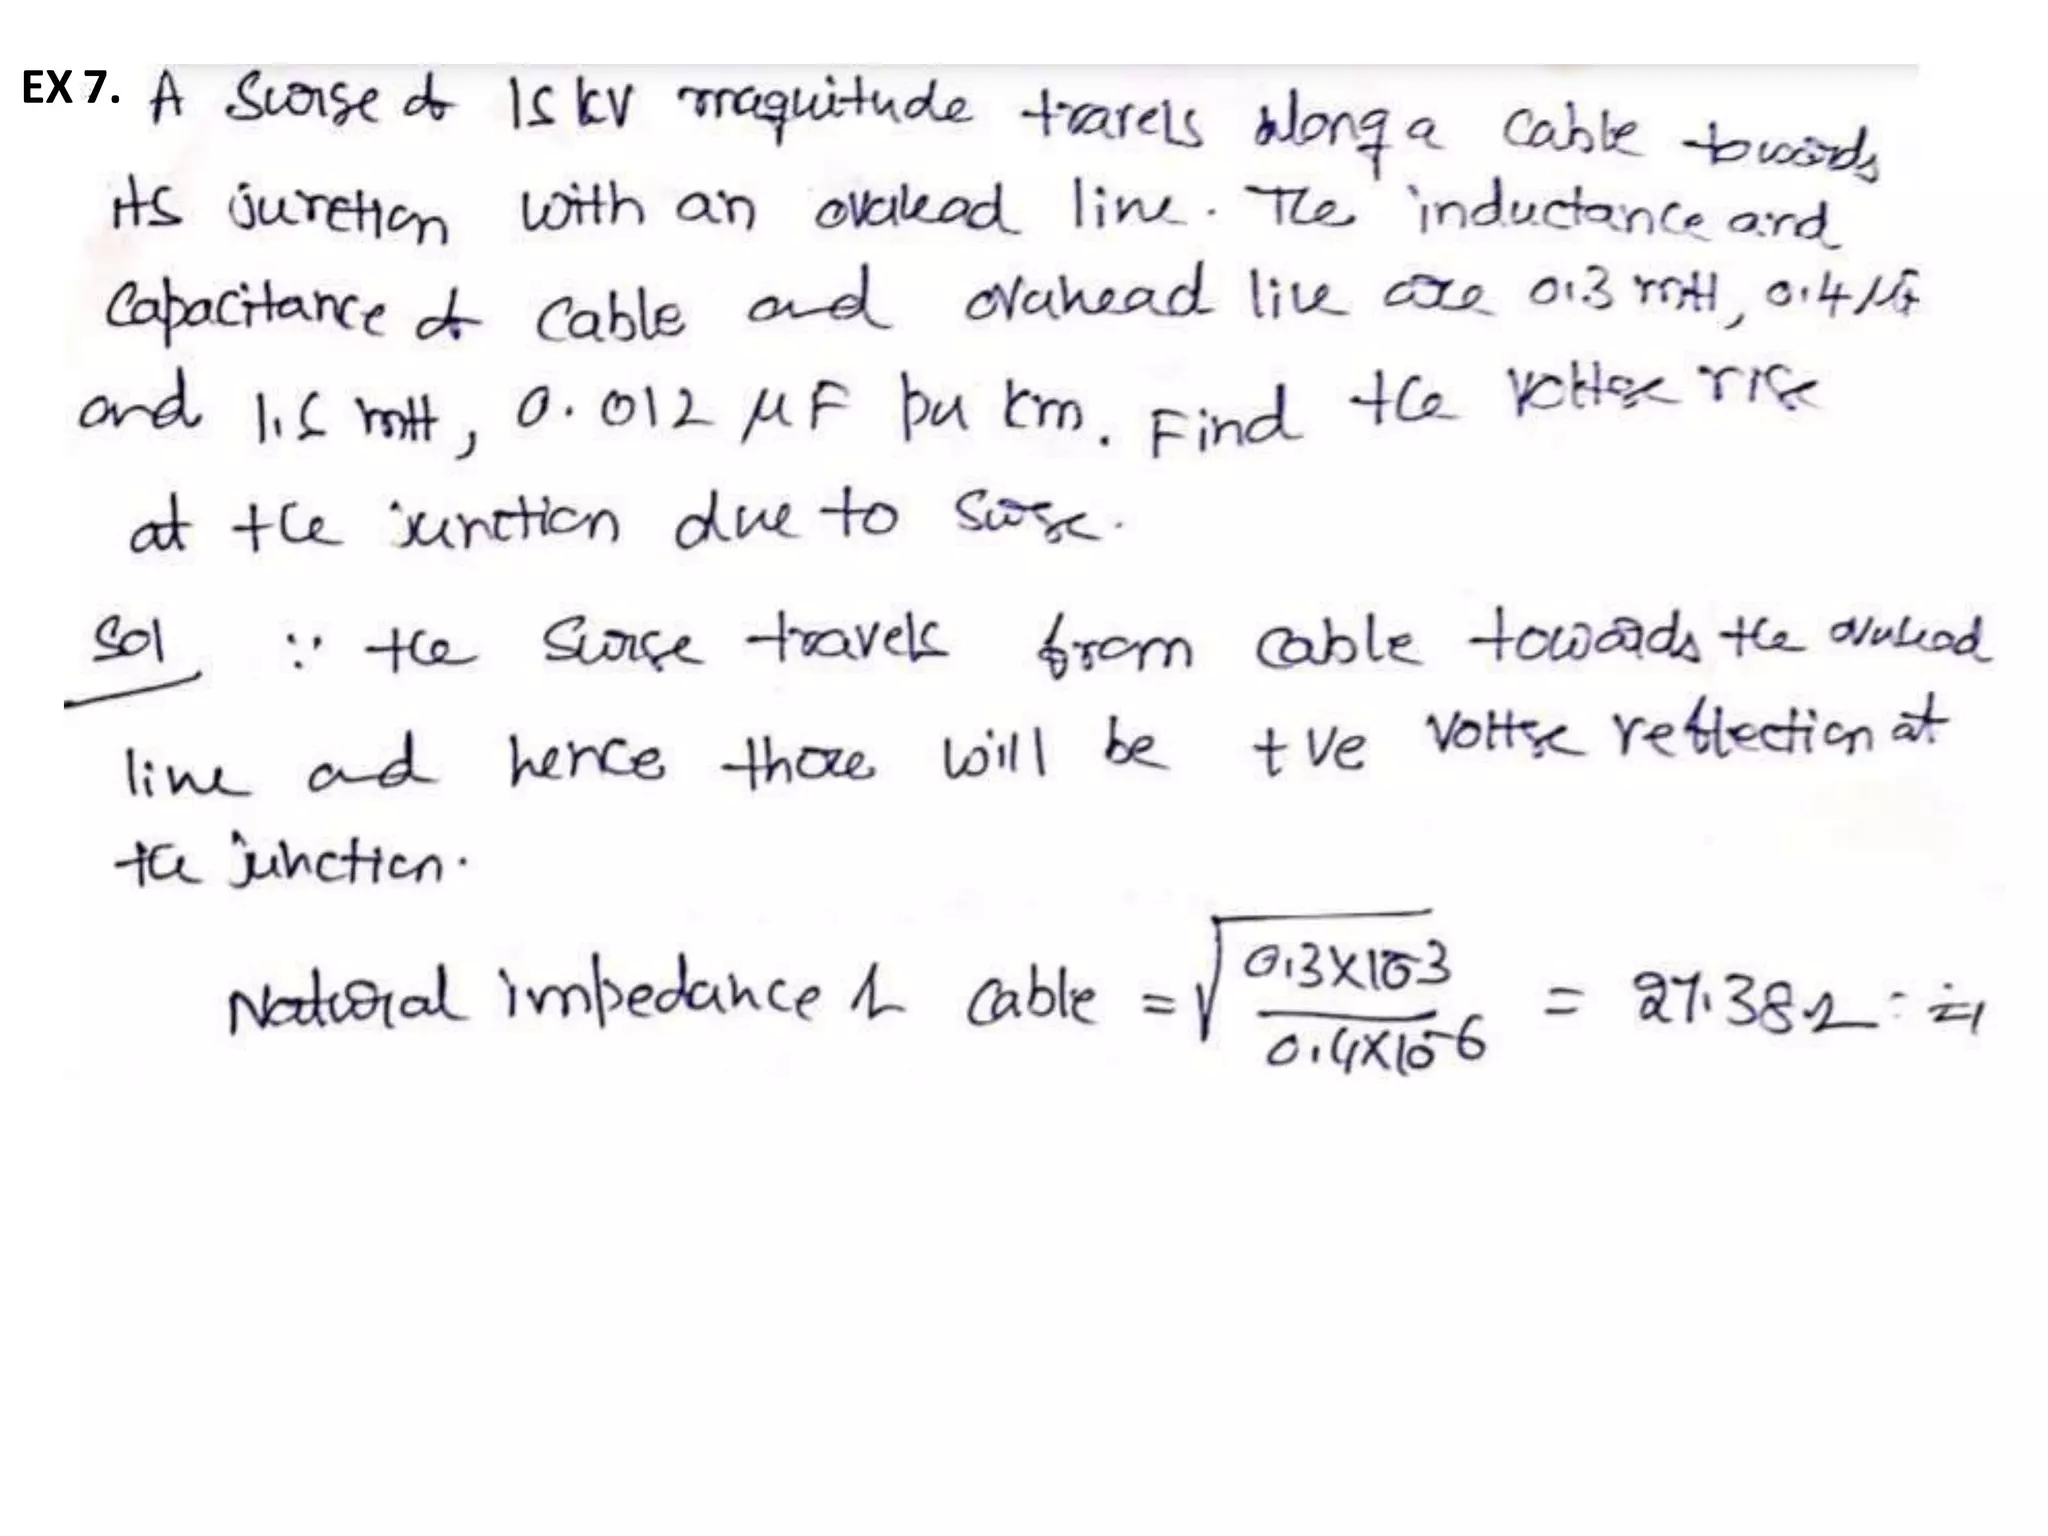 EX 7. A Surge of 15 kV magnitude travels along a cable towards
its junction with an overhead line. The inductance and
Capacitance of cable and overhead line are 0.3 mH, 0.4 μF
and 1.5 mH, 0.012 μF per km. Find the voltage rise
at the junction due to surge.
Sol ∵ the surge travels from cable towards the overhead
line and hence there will be +ve voltage reflection at
the junction.
Natural impedance of cable = √(0.3×10-3 / 0.4×10-6) = 27.38Ω = Z1